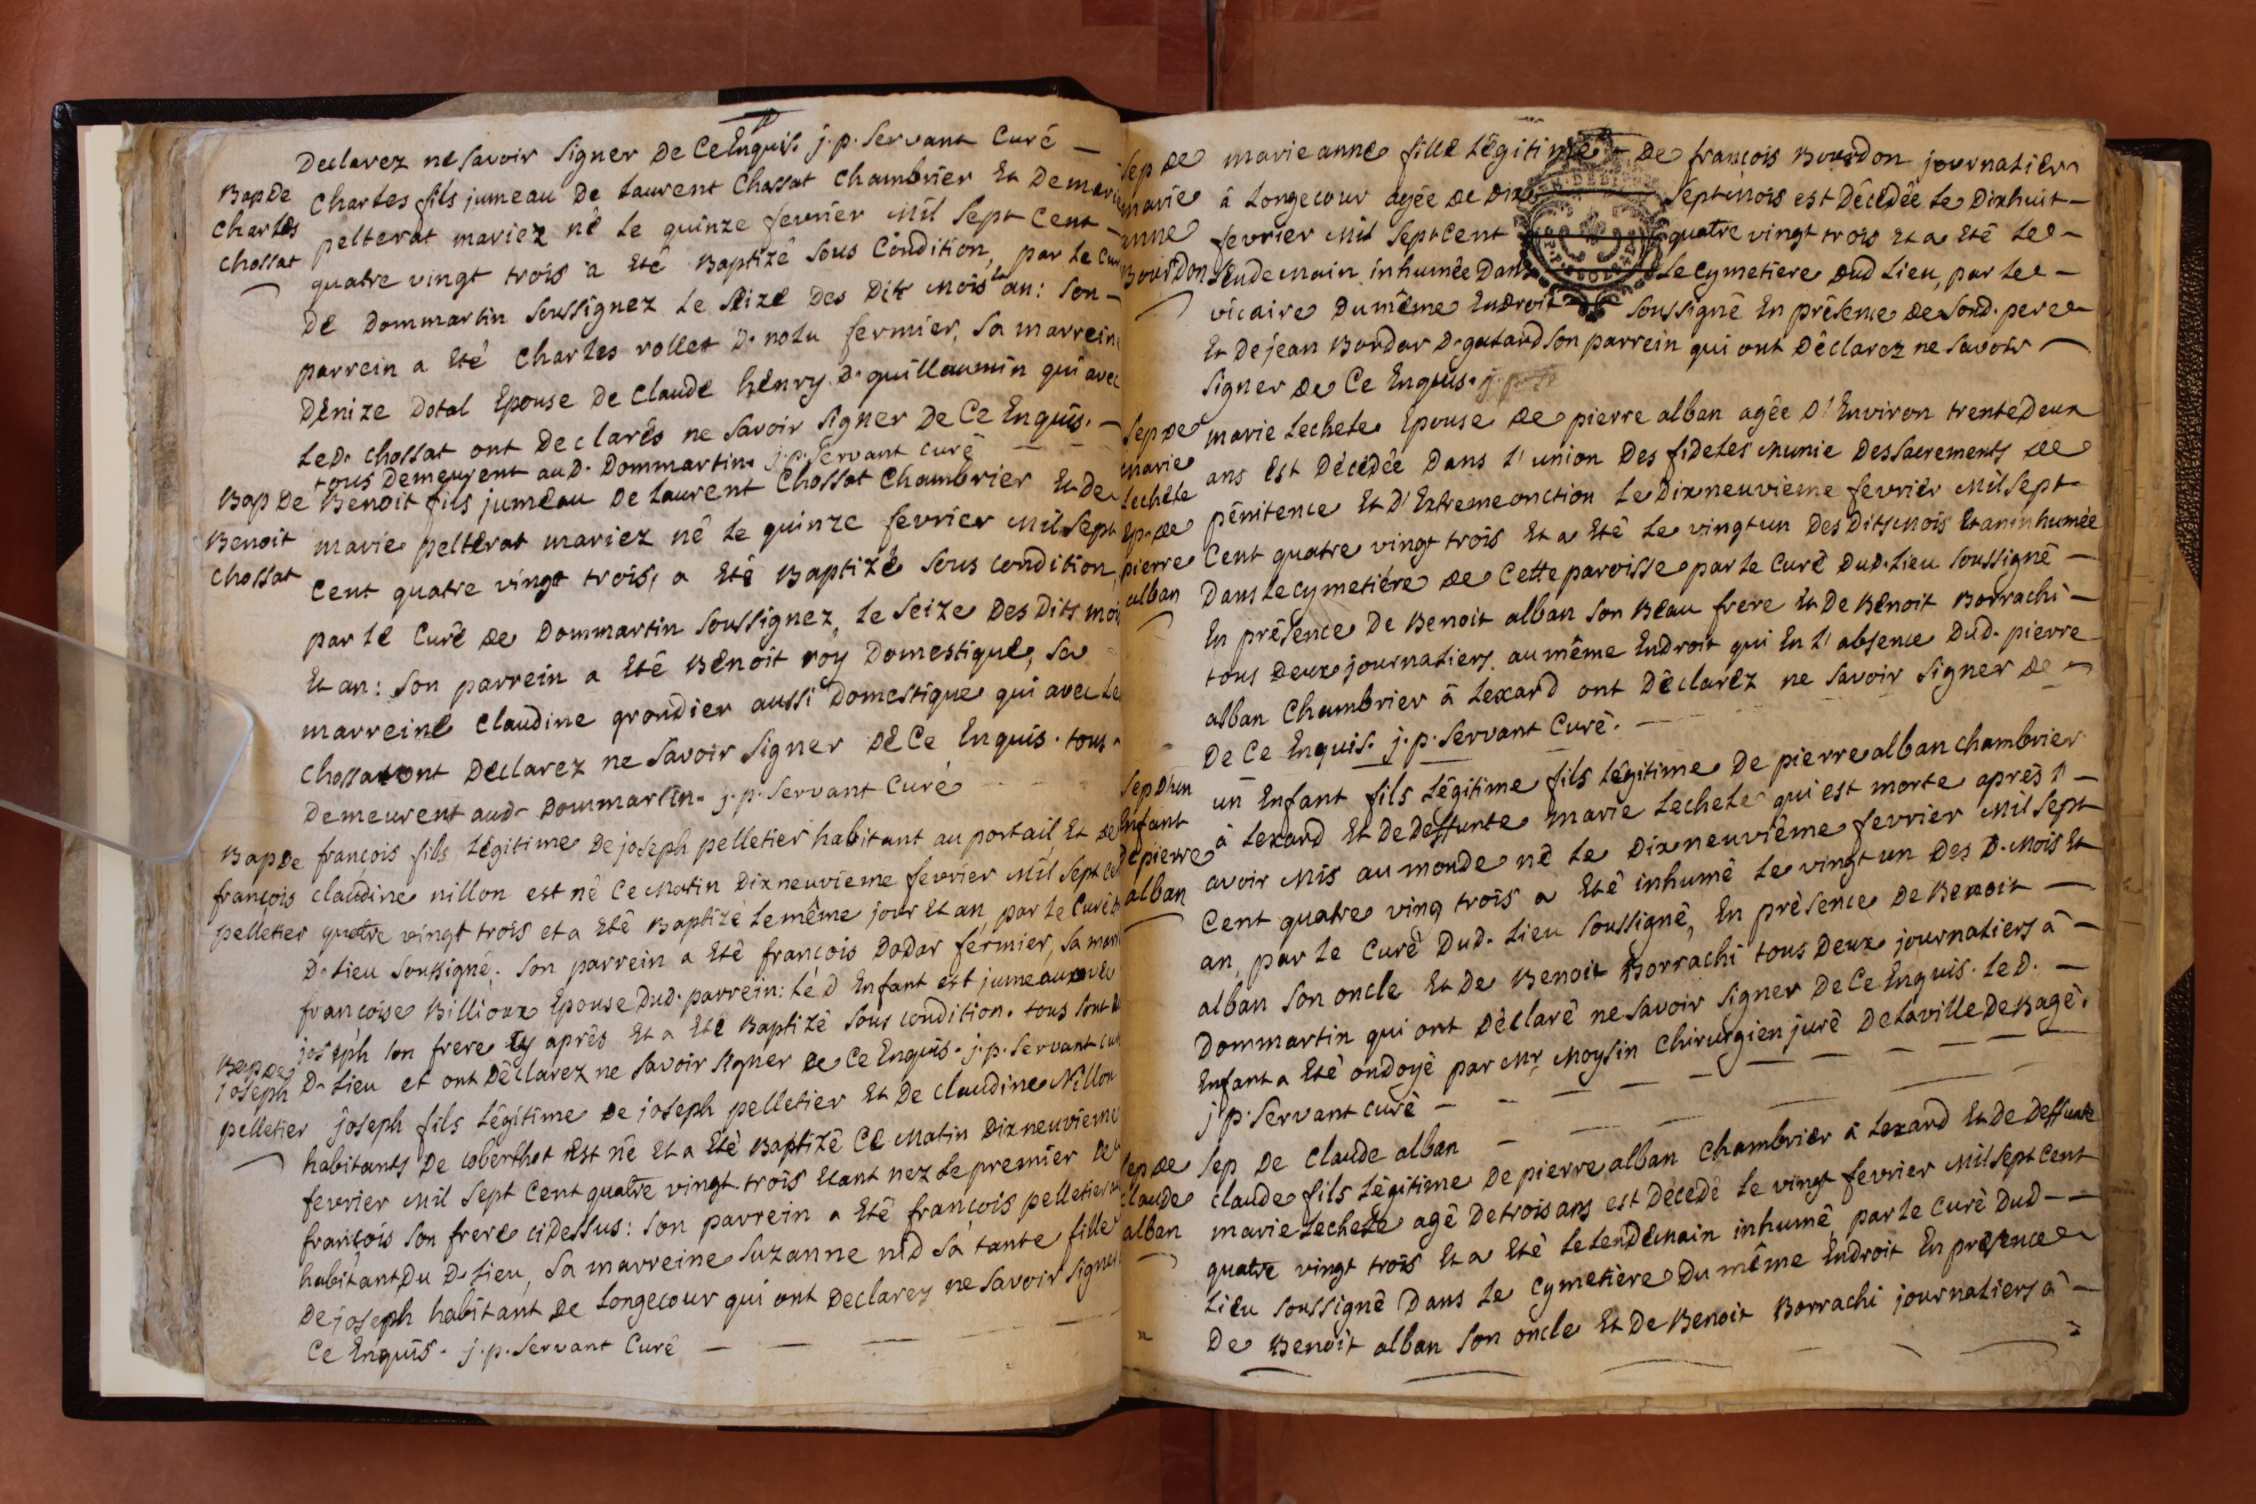 Declarez ne savoir signer de ce Enquis. j. p. Servant Curé —
Bap de
Charles
Chossat
Charles fils jumeau de Laurent Chossat Chambrier Et de marie
pelterat mariez né le quinze fevrier mil sept cent
quatre vingt trois a Eté Baptizé sous condition, par le Curé
de Dommartin soussignez le seize des dits mois et an: son —
parrein a Eté Charles rollet D. nolu fermier, sa marreine
Denize Dotal Epouse de Claude henry D. guillaumin qui avec
Led. Chossat ont declarés ne savoir signer de ce Enquis. —
tous demeurent aud. Dommartin. j. p. Servant curé
Bap de
Benoit
chossat
Benoit fils jumeau de Laurent Chossat Chambrier Et de
marie pelterat mariez né le quinze fevrier mil sept
cent quatre vingt trois, a Eté Baptizé sous condition
par le Curé de Dommartin soussignez, le seize des dits mois
Et an: son parrein a Eté Benoit roy Domestique, sa
marreine Claudine grondier aussi Domestique qui avec le
chossat ont declarez ne savoir signer de ce Enquis. tous
demeurent aud. Dommartin. j. p. Servant Curé
Bap de
françois
pelletier
françois fils légitime de joseph pelletier habitant au portail, Et de
claudine nillon est né ce matin dixneuvieme fevrier mil sept cent
quatre vingt trois et a eté Baptizé le même jour et an, par le Curé d.
D. lieu soussigné. Son parrein a Eté françois Dodar fermier, sa marr
françoise Billioux Epouse dud. parrein: Le d Enfant est jumeau avec
joseph son frere cy aprés Et a Eté Baptizé sous condition. tous sont d
D. lieu et ont Déclarez ne savoir signer de ce Enquis. j. p. Servant cur
Bap de
joseph
pelletier
joseph fils légitime de joseph pelletier Et de claudine Nillon
habitants de loberthot Est né Et a Eté Baptizé ce matin dixneuvieme
fevrier mil sept cent quatre vingt trois Etant nez le premier de
françois son frere cidessus: son parrein a Eté françois pelletier
habitant du D. lieu, sa marreine suzanne nid sa tante fille
de joseph habitant de Longecour qui ont declarez ne savoir signer
Ce Enquis. j. p. Servant Curé —
Sep de
marie
anne
Bourdon
marie anne fille légitime de françois Bourdon journalier
à Longecour agée de dix sept mois est décédée le dixhuit —
fevrier mil sept cent quatre vingt trois Et a Eté le —
lendemain inhumée dans le cymetiere dud lieu, par le —
vicaire du même Endroit soussigné En présence de sond. pere
Et de jean Bordar D. gatard son parrein qui ont déclarez ne savoir —
signer de ce Enquis.
Sep de
marie
Lechele
Ep. de
pierre
alban
marie Lechele Epouse de pierre alban agée d'Environ trente deux
ans Est décédée dans l'union des fideles munie des sacrements de
pénitence Et d'Extreme onction le dixneuvieme fevrier mil sept
cent quatre vingt trois Et a Eté le vingt un des dits mois Et an inhumée
dans le cymetiére de cette paroisse par le Curé dud. lieu soussigné —
En présence de Benoit alban son Beau frere Et de Benoit Borrachi —
tous deux journaliers au même Endroit qui En l'absence dud. pierre
alban Chambrier à Lexard ont déclarez ne savoir signer de
de ce Enquis. j. p. Servant Curé. —
Sep d'un
Enfant
de pierre
alban
un Enfant fils légitime fils légitime de pierre alban chambrier
à Lexard Et de deffunte marie Lechele qui est morte aprés l' —
avoir mis au monde né le dixneuviéme fevrier mil sept
cent quatre ving trois a Eté inhumé le vingt un des d. mois Et
an, par le Curé dud. lieu soussigné, En présence de Benoit —
alban son oncle Et de Benoit Borrachi tous deux journaliers à —
Dommartin qui ont déclaré ne savoir signer de ce Enquis. le d. —
Enfant a Eté ondoyé par Mr. Moysin chirurgien juré de la ville de Bagé.
j. p. Servant curé —
Sep de
claude
alban
Sep de claude alban —
claude fils légitime de pierre alban chambrier à Lexard Et de deffunte
marie Lechele agé de trois ans est décédé le vingt fevrier mil sept cent
quatre vingt trois Et a Eté le lendemain inhumé par le Curé dud — —
lieu soussigné dans le cymetiére du même Endroit En présence
de Benoit alban son oncle Et de Benoit Borrachi journaliers à —